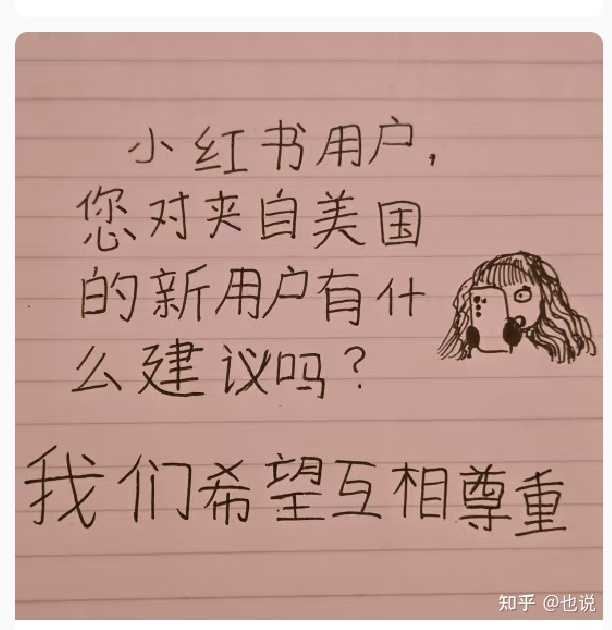 小红书用户，
您对夹自美国
的新用户有什
么建议吗？
我们希望互相尊重
知乎 @也说